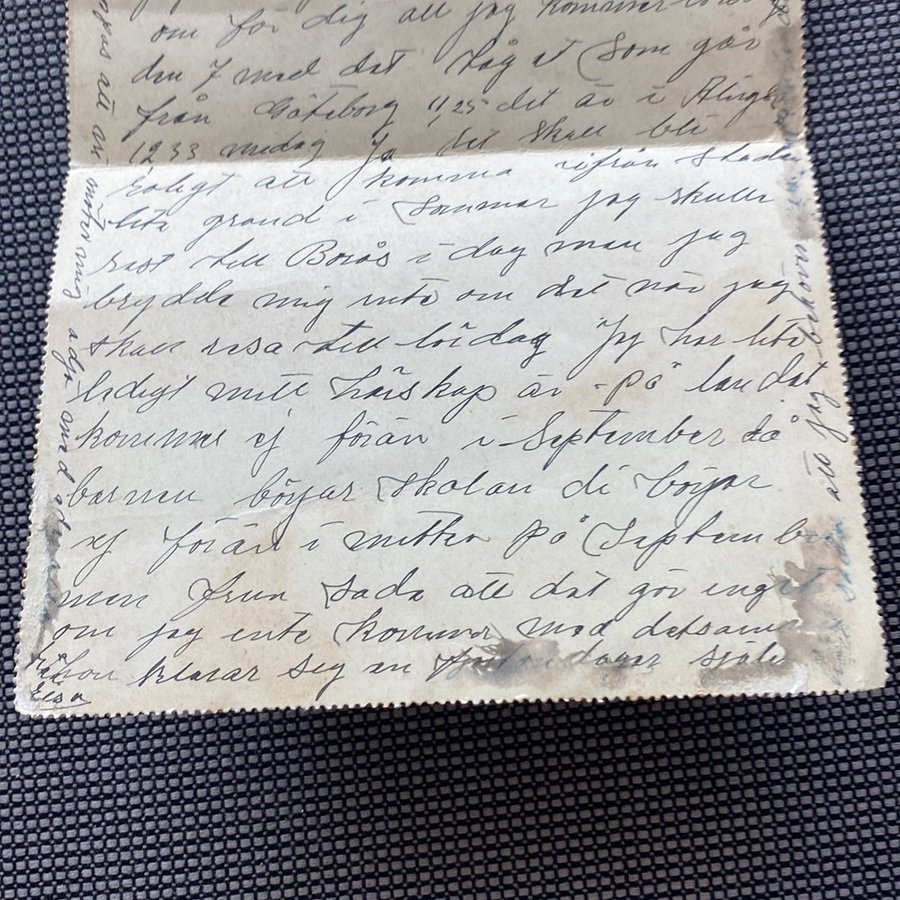 om för dig att jag kommer
den 7 med det tåg et som går
från Göteborg 11,25 det är i Alings
12 33 midag Ja det skall bli
roligt att komma ifrån staden
lita grand i Sommar jag skulle
rest till Borås i dag men jag
brydde mig inte om det när jag
skall resa till lördag Jg har lite
ledigt mitt härskap är på landet
kommer ej förän i September då
barnen börjar skolan di börjar
ej förän i mitten på September
men frun sade att det gör inget
om jag inte kommer med detsamma
hon klarar sig en fjorton dagar själv
Elsa
att jag